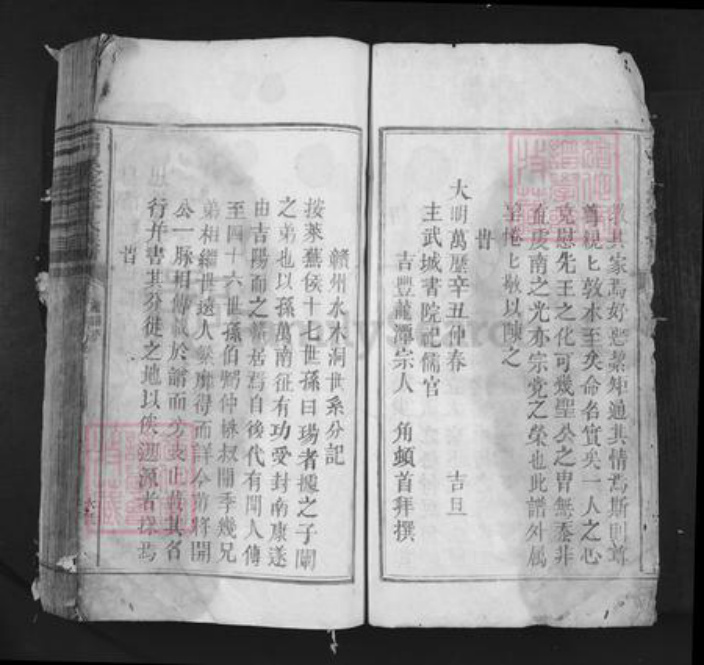 其家焉好惡絜矩通其情焉斯則尊
尊親匕敦本至矣命名實矣一人之心
克慰先王之化可幾聖公之冑無忝非
虔南之光亦宗党之榮也此譜外属
惓匕敬以陳之
旹
大明萬歷辛丑仲春　吉旦
主武城書院祀儒官
吉豐龍潭宗人　角頓首拜撰
贛州水木洞世系分記
按萊蕪侯十七世孫曰瑒者據之子闡
之弟也以孫萬南征有功受封南康遂
由吉陽而之業居焉自後代有聞人傳
至四十六世孫伯弼仲栐叔開季幾兄
弟相繼世遠人繁靡得而詳今前將開
公一脉相傳敘於譜而旁支止載其名
行并書其分徙之地以俟遡源者採焉
旹